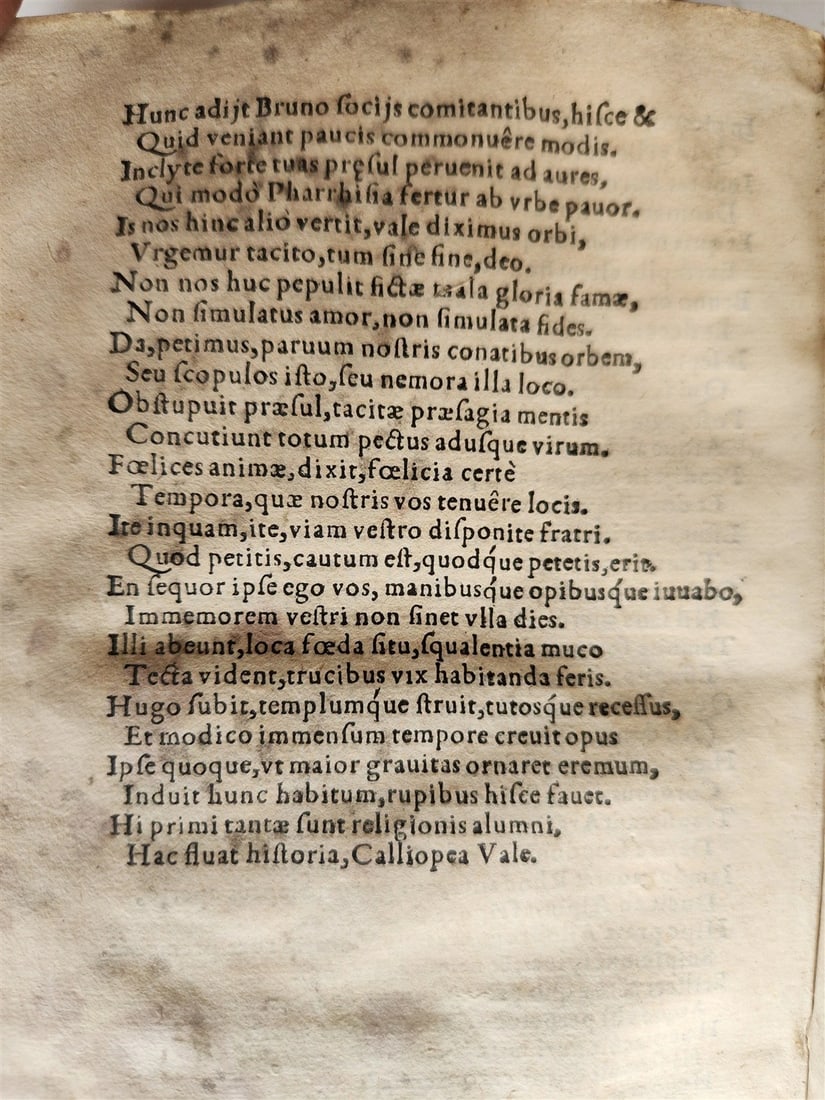 Hunc adijt Bruno ſocijs comitantibus,hiſce &
Quid veniant paucis commonuêre modis.
Inclyte forte tuas pręſul peruenit ad aures,
Qui modò Pharrhiſia fertur ab vrbe pauor.
Is nos hinc aliò vertit,vale diximus orbi,
Vrgemur tacito,tum ſine fine,deo.
Non nos huc pepulit fictæ gloria famæ,
Non ſimulatus amor,non ſimulata fides.
Da,petimus,paruum noſtris conatibus orbem,
Seu ſcopulos iſto,ſeu nemora illa loco.
Obſtupuit præſul,tacitæ præſagia mentis
Concutiunt totum pectus aduſque virum.
Fœlices animæ,dixit,fœlicia certè
Tempora,quæ noſtris vos tenuêre locis.
Ite inquam,ite,viam veſtro diſponite fratri.
Quod petitis,cautum eſt,quodq́ue petetis,erit.
En ſequor ipſe ego vos, manibusq́ue opibusq́ue iuuabo,
Immemorem veſtri non ſinet vlla dies.
Illi abeunt,loca fœda ſitu,ſqualentia muco
Tecta vident,trucibus vix habitanda feris.
Hugo ſubit,templumq́ue ſtruit,tutosq́ue receſſus,
Et modico immenſum tempore creuit opus
Ipſe quoque,vt maior grauitas ornaret eremum,
Induit hunc habitum,rupibus hiſce fauet.
Hi primi tantæ ſunt religionis alumni,
Hac fluat hiſtoria,Calliopea Vale.